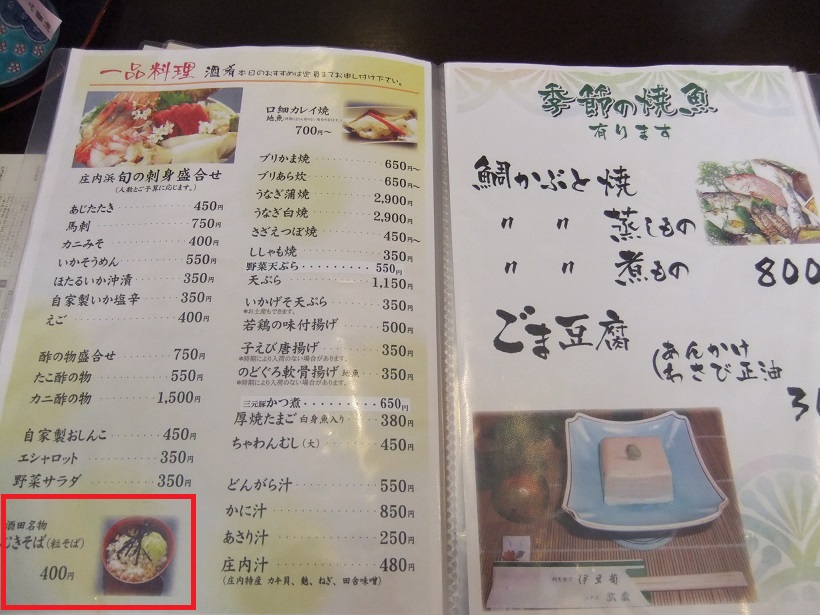 一品料理 酒肴 本日のおすすめは定員までお申し付け下さい。
庄内浜 旬の刺身盛合せ
(人数とご予算に応じます。)
あじたたき 450円
馬刺 750円
カニみそ 400円
いかそうめん 550円
ほたるいか沖漬 350円
自家製いか塩辛 350円
えご 400円
酢の物盛合せ 750円
たこ酢の物 550円
カニ酢の物 1,500円
自家製おしんこ 450円
エシャロット 350円
野菜サラダ 350円
酒田名物
むきそば(粒そば)
400円
口細カレイ焼
地魚
700円～
ブリかま焼 650円～
ブリあら炊 650円～
うなぎ蒲焼 2,900
うなぎ白焼 2,900
さざえつぼ焼 450円～
ししゃも焼 350円
野菜天ぷら 550円
天ぷら 1,150円
いかげそ天ぷら 350円
※お土産もできます。
若鶏の味付揚げ 500円
子えび唐揚げ 350円
※時期により入荷のない場合があります。
のどぐろ軟骨揚げ 地魚 350円
※時期により入荷のない場合があります。
三元豚かつ煮 650円
厚焼たまご 白身魚入り 380円
ちゃわんむし(大) 450円
どんがら汁 550円
かに汁 850円
あさり汁 250円
庄内汁 480円
(庄内特産 カキ貝、麩、ねぎ、田舎味噌)
季節の焼魚
有ります
鯛かぶと焼
〃 〃 蒸しもの
〃 〃 煮もの 800
ごま豆腐
(あんかけ
わさび正油